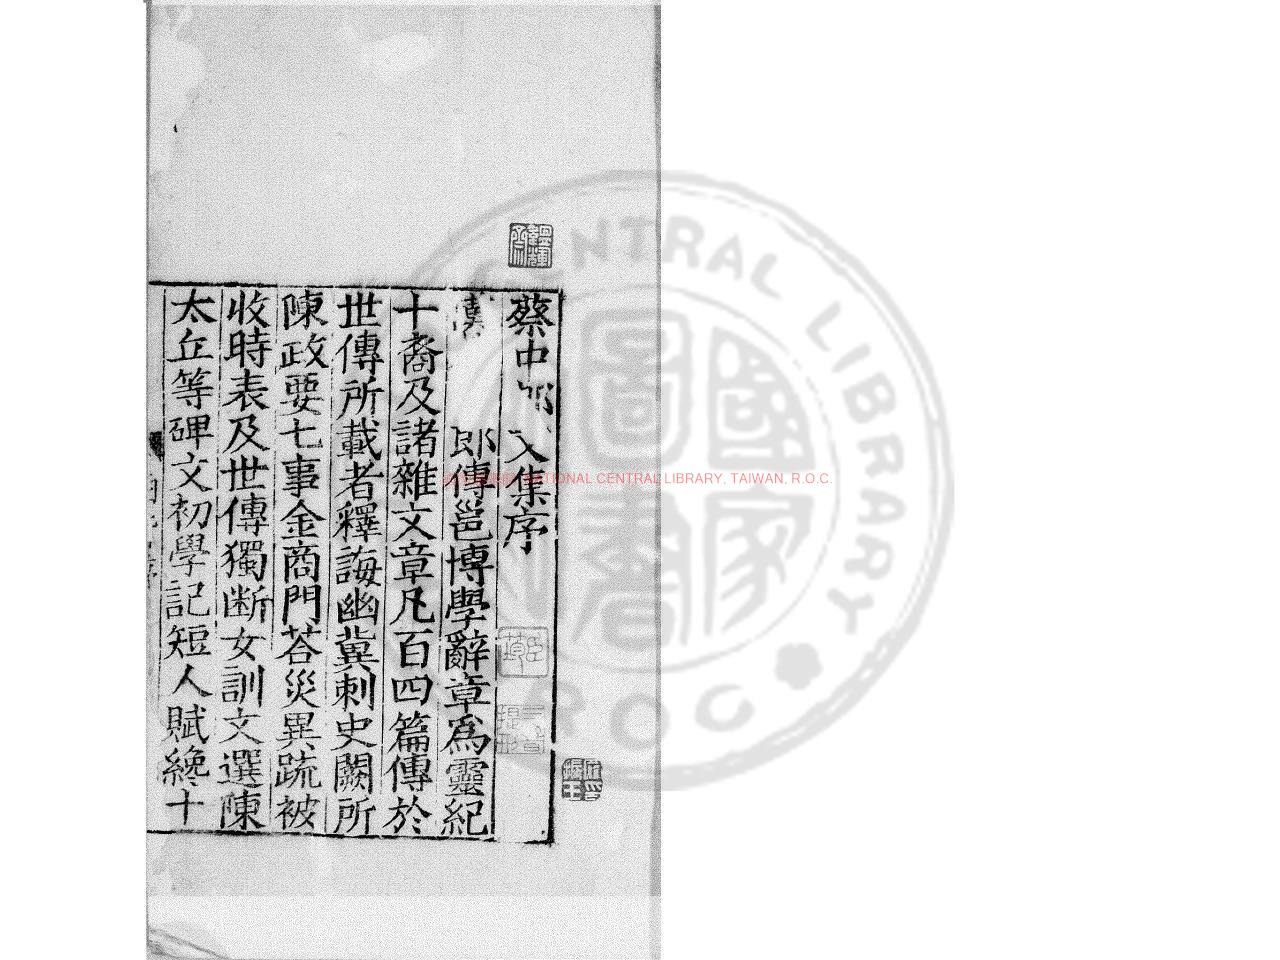 蔡中郎文集序
漢 郎傳邕博學辭章為靈紀
十裔及諸雜文章凡百四篇傳於
世傳所載者釋誨幽冀刺史闕所
陳政要七事金商門荅災異䟽被
收時表及世傳獨斷女訓文選陳
太丘等碑文初學記短人賦纔十
NATIONAL CENTRAL LIBRARY, TAIWAN, R.O.C.
CENTRAL LIBRARY
R O C
國家圖書